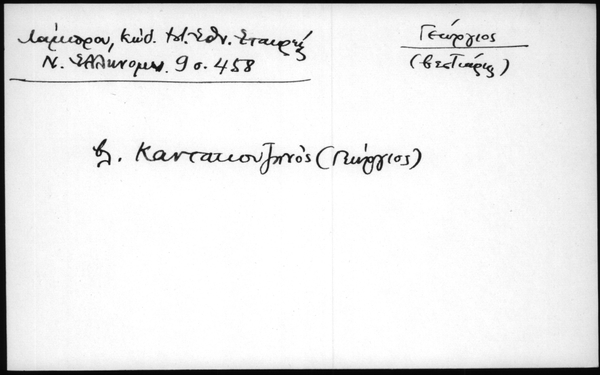 Λάμπρου, κώδ. Ἱστ. Ἐθν. Ἑταιρείας
Ν. Ἑλληνομν. 9 σ. 458
Γεώργιος
(βεστιάριος)
βλ. Καντακουζηνὸς (Γεώργιος)